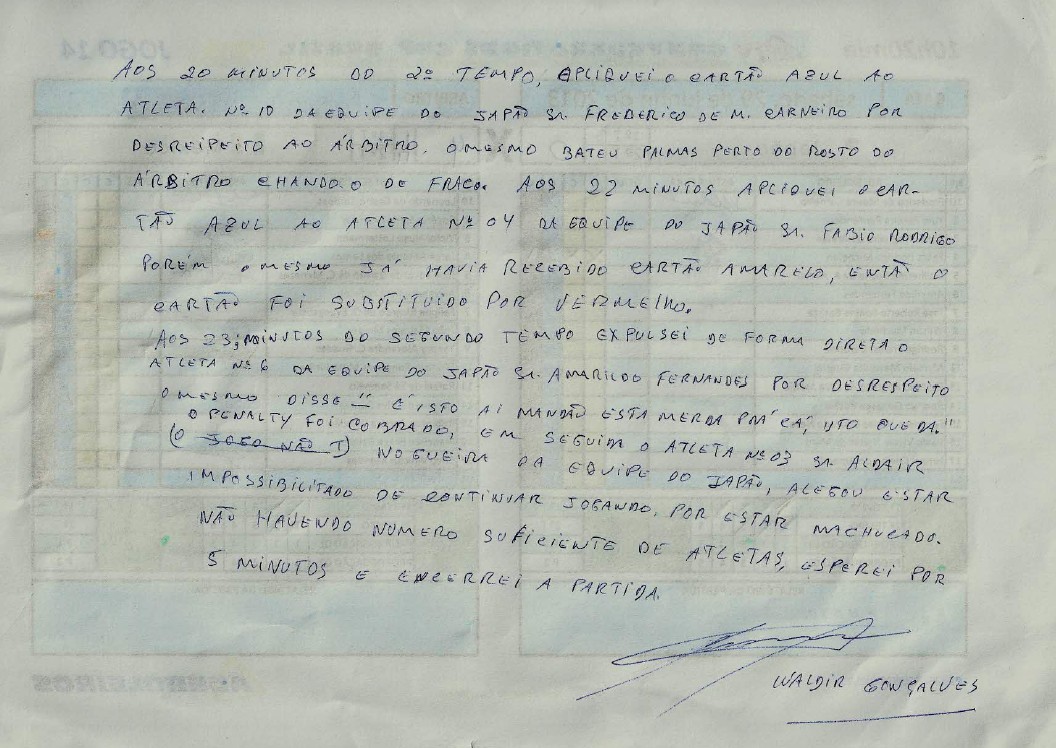 AOS 20 MINUTOS DO 2º TEMPO, APLIQUEI O CARTÃO AZUL AO
ATLETA. Nº 10 DA EQUIPE DO JAPÃO Sr. FREDERICO DE M. CARNEIRO POR
DESREIPEITO AO ÁRBITRO. O MESMO BATEU PALMAS PERTO DO ROSTO DO
ÁRBITRO CHANDO.O DE FRACO. AOS 22 MINUTOS APLIQUEI O CAR-
TÃO AZUL AO ATLETA Nº 04 DA EQUIPE DO JAPÃO Sr. FABIO RODRIGO
PORÉM O MESMO JÁ HAVIA RECEBIDO CARTÃO AMARELO, ENTÃO O
CARTÃO FOI SUBSTITUIDO POR VERMELHO.
AOS 23, MINUTOS DO SEGUNDO TEMPO EXPULSEI DE FORMA DIRETA O
ATLETA Nº 6 DA EQUIPE DO JAPÃO Sr. AMARILDO FERNANDES POR DESRESPEITO
O MESMO DISSE " É ISTO AI MANDÃO ESTA MERDA PRA CÁ,
O PENALTY FOI COBRADO, EM SEGUIDA O ATLETA Nº 03 Sr. ALDAIR
(O JOGO NÃO T) NOGUEIRA DA EQUIPE DO JAPÃO, ALEGOU ESTAR
IMPOSSIBILITADO DE CONTINUAR JOGANDO, POR ESTAR MACHUCADO.
NÃO HAVENDO NUMERO SUFICIENTE DE ATLETAS, ESPEREI POR
5 MINUTOS E ENCERREI A PARTIDA.
WALDIR GONÇALVES